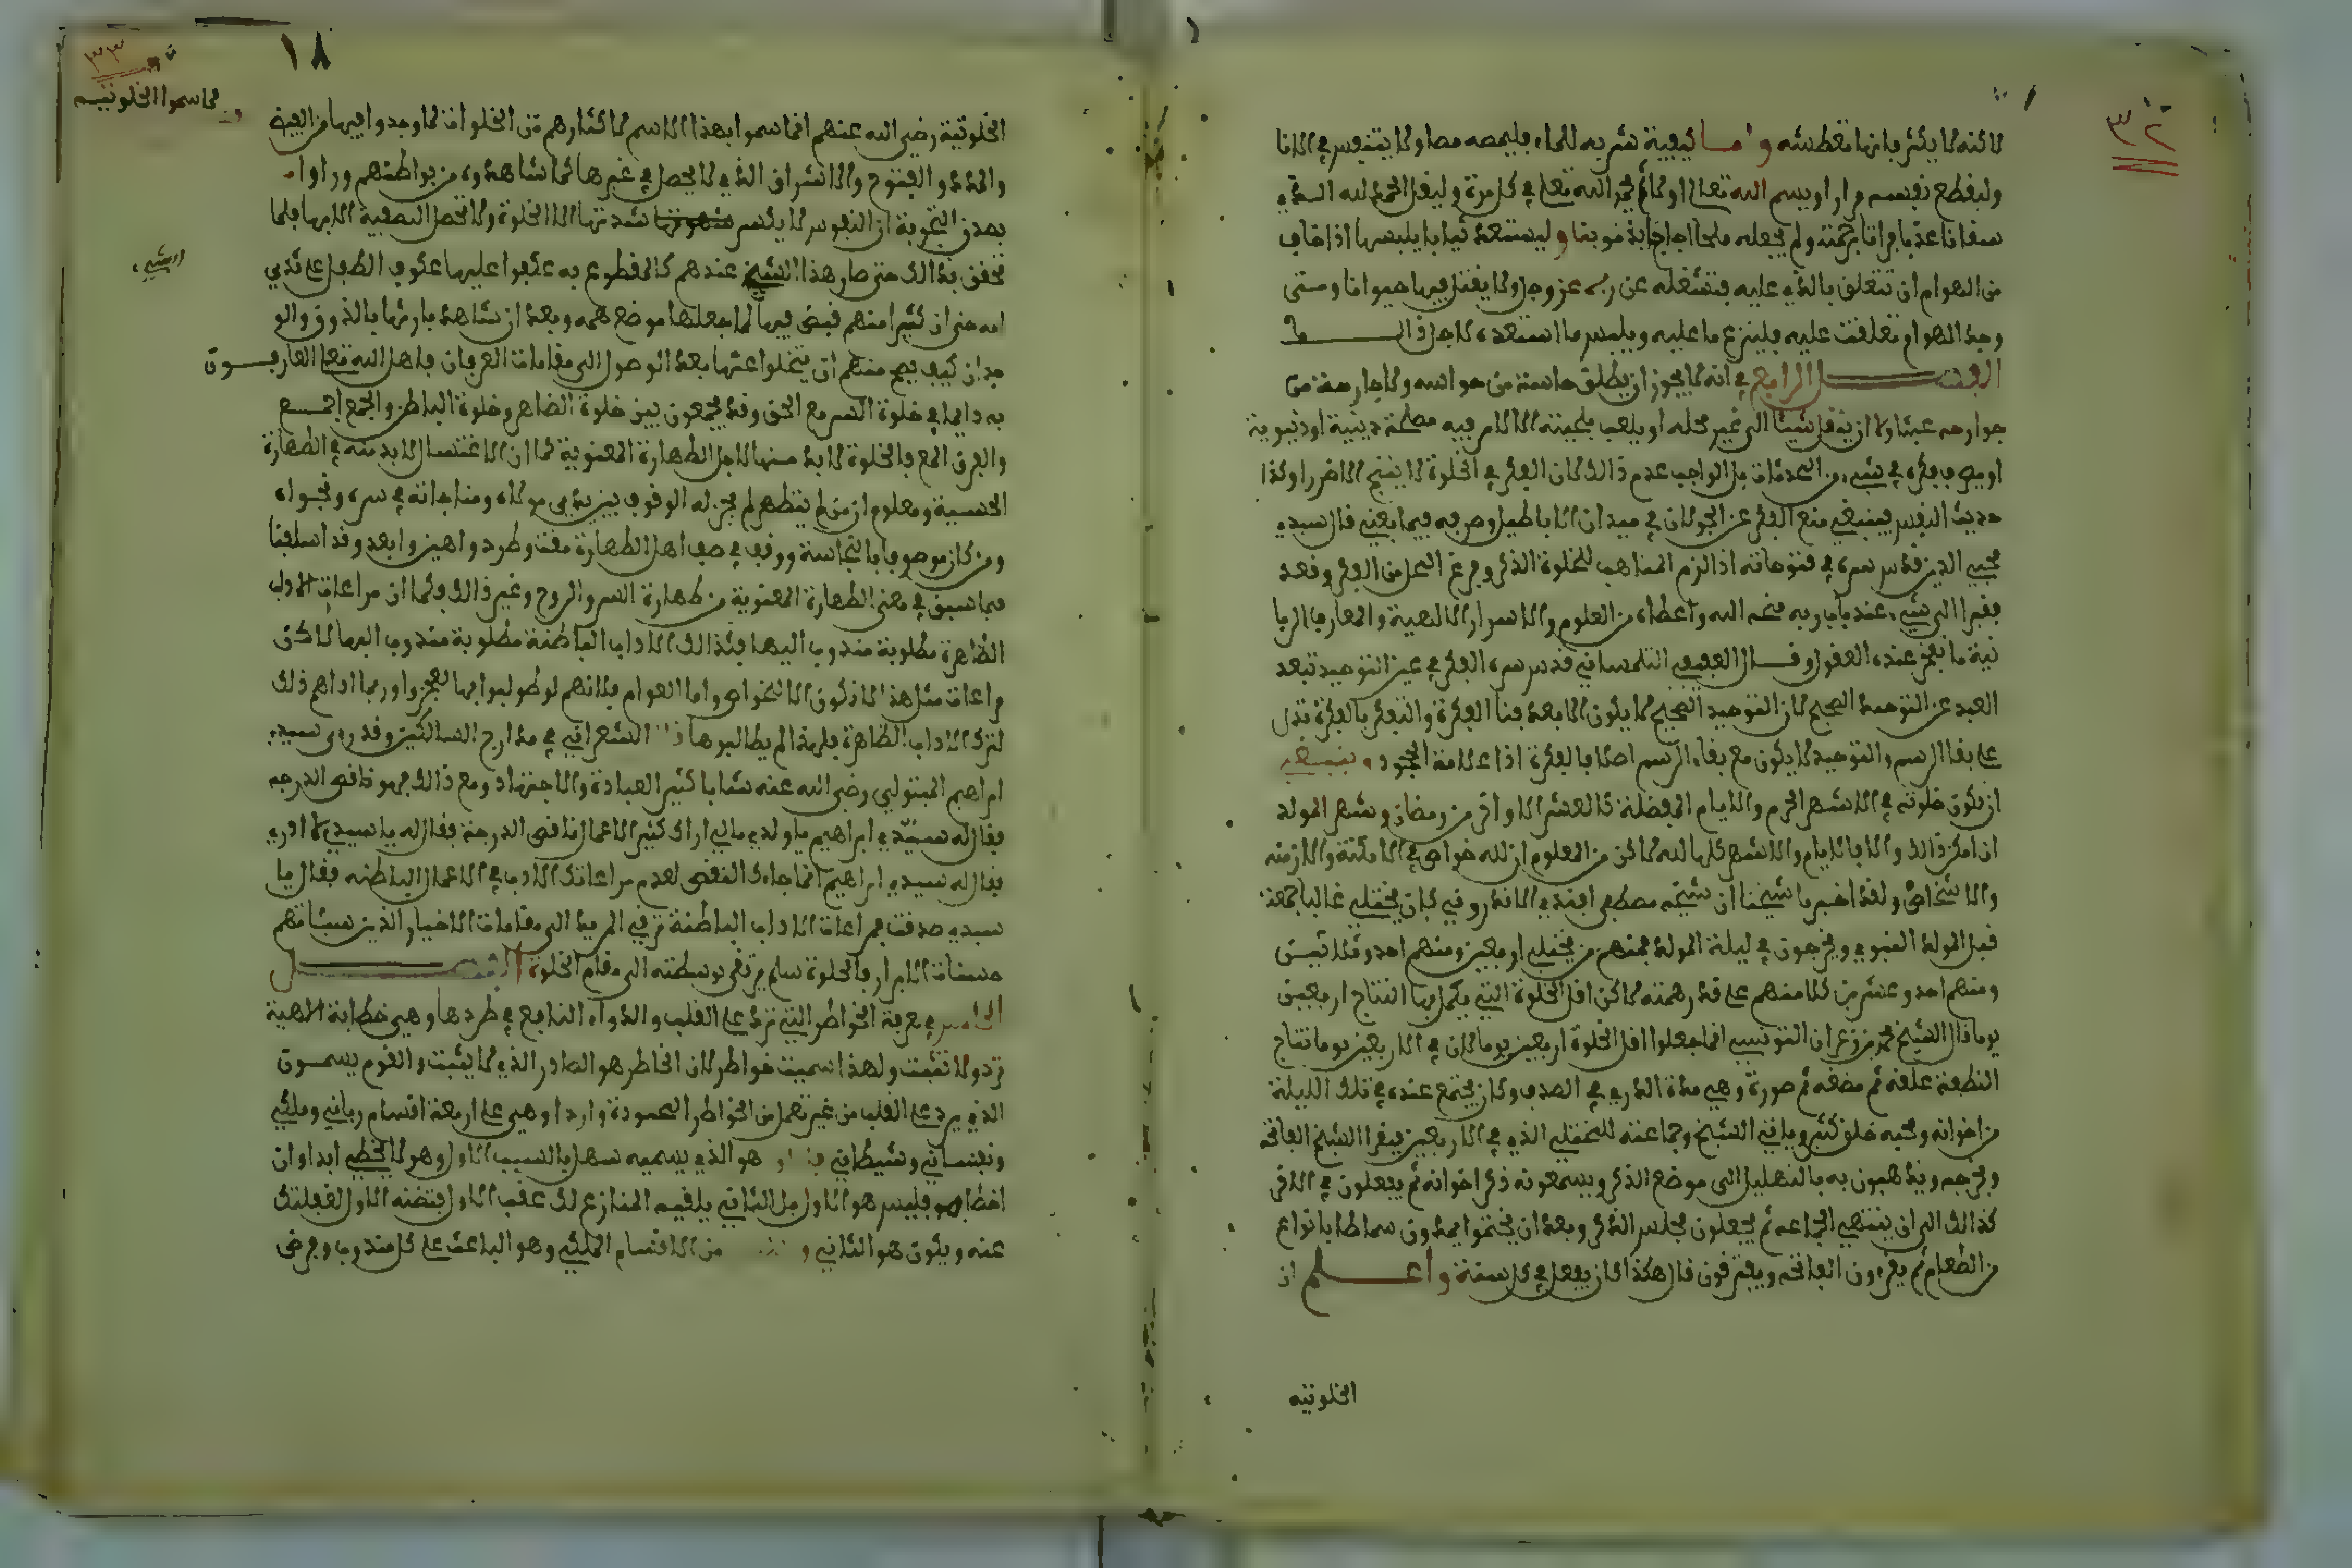 ٣٢
لاكنه لا يكثر بانها تعطشه واما كيفية شربه للماء فليمصه مصا ولا يتنفس في الانا
وليقطع نفسه مرارا وبسم الله تعالى اولا ثم يحمد الله تعالى في كل مرة وليقل الحمد لله الذي
سقانا عذبا فراتا برحمته ولم يجعله ملحا اجاجا بذنوبنا وليستعد ثيابا يلبسها اذا خاف
من الهوام ان تتعلق بالذي عليه فتشغله عن ربه عز وجل ولا يقتل فيها حيوانا ومتى
وجد الهوام تعلقت عليه فلينزع ما عليه ويلبس ما استعده لاجل ذالـــك
الفصـــل الرابع في انه لا يجوز ان يطلق حاسة من حواسه ولا جارحة من
جوارحه عبثا ولا ان ينقل شيئا الى غير محله او يلعب بلحيته الا لامر فيه مصلحة دينية او دنيوية
او يصرف فكره في شيء من المحدثات بل الواجب عدم ذالك لان الفكر في الخلوة لا ينتج الا ضررا وكذا
حديث النفس فينبغي منع الفكر عن الجولان في ميدان الاباطيل وصرفه فيما يعني قال سيدي
محيي الدين قدس سره في فتوحاته اذا لزم المتاهب للخلوة الذكر وفرغ المحل من الفكر وقعد
فقيرا الى شيء عند باب ربه منحه الله واعطاه من العلوم والاسرار الالهية والمعارف الربا
نية ما يعجز عنده العقول وقـــال العفيف التلمساني قدس سره الفكر في عين التوحيد تبعد
العبد عن التوحيد الصحيح لان التوحيد الصحيح لا يكون الا بعد فنا الفكرة والتفكر بالفكرة تدل
على بقا الرسم والتوحيد لا يكون مع بقاء الرسم اصلا فالفكرة اذا علامة الجحود وينبغي
ان تكون خلوته في الاشهر الحرم والايام المفضلة كالعشر الاواخر من رمضان وشهر المولد
ان امكن ذالك والا فالايام والاشهر كلها لله لاكن من المعلوم ان لله خواص في الامكنة والازمنه
والاشخاص ولقد اخبرنا شيخنا ان شيخه مصطفى افندي الادرنوي كان يختلي غالبا جمعة
قبل المولد النبوي ويخرجون في ليلة المولد فمنهم من يختلي اربعين ومنهم احد وثلاثين
ومنهم احد وعشرين كلا منهم على قدر همته لاكن اقل الخلوة التي يكمل بها النتاج اربعين
يوما قال الشيخ محمد بن زعران التونسي انما جعلوا اقل الخلوة اربعين يوما لان في الاربعين يوما نتاج
النطفة علقة ثم مضغه ثم صورة وهي مدة الدر في الصدف وكان يجتمع عنده في تلك الليلة
من اخوانه ومحبيه خلق كثير وياتي الشيخ وجماعته للمختلي الذي في الاربعين فيقرا الشيخ الفاتحة
ويخرجه ويذهبون به بالتهليل الى موضع الذكر ويسمعونه ذكر اخوانه ثم يفعلون في الاخر
كذالك الى ان ينتهي الجماعه ثم يجعلون مجلس الذكر وبعد ان يختموا يمدون سماطا بانواع
من الطعام ثم يقرءون الفاتحه ويفترقون قال هكذا كان يفعل في كل سنة واعـــلم ان
الخلوتيه
٣٣
١٨
لما سموا الخلوتيه
الخلوتية رضي الله عنهم انما سموا بهذا الاسم لاكثارهم من الخلوات لما وجدوا فيها من الفيض
والمدد والفتوح والاشراف الذي لا يحصل في غيرها كما شاهدوه من بواطنهم وراوا
بصدق التجربة ان النفوس لا يكسر شدتها الا الخلوة ولا تحصل التصفية الا بها فلما
تحقق بذالك حتى صار هذا الشيء عندهم كالمقطوع به عكفوا عليها عكوف الطفل على ثدي
امه حتى ان كثيرا منهم قبض فيها لما جعلها موضع همه وبعد ان شاهد بارئها بالذوق والو
جدان كيف يصح منهم ان يتخلوا عنها بعد الوصول الى مقامات العرفان فاهل الله تعالى العارفـــون
به دايما في خلوة السر مع الحق وقد يجمعون بين خلوة الظاهر وخلوة الباطن والجمع اجمـــع
والفرق المع فالخلوة لا بد منها لاجل الطهارة المعنوية كما ان الاغتسال لا بد منه في الطهارة
الحسية ومعلوم ان من لم يتطهر لم يجز له الوقوف بين يدي مولاه ومناجاته في سره ونجواه
ومن كان موصوفا بالنجاسة ووقف في صف اهل الطهارة مقت وطرد واهين وابعد وقد اسلفنا
فيما سبق في معنى الطهارة المعنوية من طهارة السر والروح وغير ذالك فكما ان مراعات الاداب
الظاهرة مطلوبة مندوب اليها فكذالك الاداب الباطنة مطلوبة مندوب اليها لاكن
مراعات مثل هذا لا تكون الا للخواص واما العوام فلانهم لو طولبوا بها لعجزوا وربما اداهم ذلك
لترك الاداب الظاهرة فلهذا لم يطالبوها الشعراني في مدارج السالكين وقد راى سيدي
ابراهيم المتبولي رضي الله عنه شابا كثير العبادة والاجتهاد ومع ذالك فهو ناقص الدرجه
فقال له سيدي ابراهيم يا ولدي مالي اراك كثير الاعمال ناقص الدرجة فقال له يا سيدي لا ادري
فقال له سيدي ابراهيم انما جاءك النقص لعدم مراعاتك الادب في الاعمال الباطنه فقال يا
سيدي صدقت فمراعات الاداب الباطنة ترقي المريد الى مقامات الاخيار الذين سيئاتهم
حسنات الابرار فالخلوة سلم يرتقى بوسطته الى مقام الخلوة الفصـــل
الخامس في معرفة الخواطر التي ترد على القلب والدواء النافع في طردها وهي خطابة الهية
ترد ولا تثبت ولهذا سميت خواطر لان الخاطر هو الصادر الذي لا يثبت والقوم يسمـــون
الذي يرد على القلب من غير تعمل من الخواطر المحمودة واردا وهي على اربعة اقسام رباني وملكي
ونفساني وشيطاني هو الذي يسميه سهل بالسبب الاول وهو لا يخطي ابدا وان
اخطا فليس هو الاول بل الثاني يلقيه المنازع لك عقب الاول فتظنه الاول لغفلتك
عنه ويكون هو الثاني و من الاقسام الملكي وهو الباعث على كل مندوب وفرض